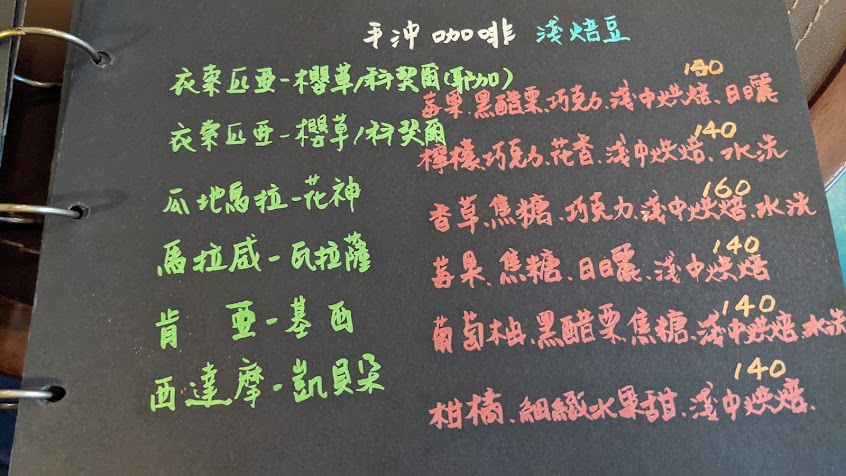 手沖咖啡 淺焙豆
衣索匹亞-櫻草/科契爾(耶加)
莓果、黑醋栗、巧克力、淺中烘焙、日曬
衣索匹亞-櫻草/科契爾
140
檸檬、巧克力、花香、淺中烘焙、水洗
瓜地馬拉-花神
160
香草、焦糖、巧克力、淺中烘焙、水洗
馬拉威-瓦拉薩
140
莓果、焦糖、日曬、淺中烘焙
肯亞-基西
140
葡萄柚、黑醋栗、焦糖、淺中烘焙、水洗
西達摩-凱貝朵
140
柑橘、細緻水果甜、淺中烘焙、